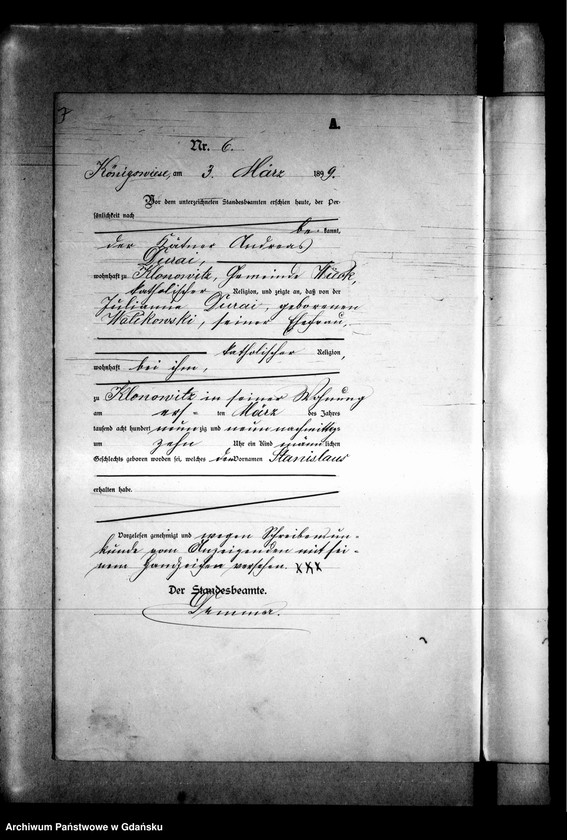 7
A.
Nr. 6.
Königswiese, am 3. März 1899.
Vor dem unterzeichneten Standesbeamten erschien heute, der Per-
sönlichkeit nach
be kannt,
der Kätner Andreas
wohnhaft zu Klonowitz, Gemeinde
katholischer Religion, und zeigte an, daß von der
Julianne geborenen
Walikowski, seiner Ehefrau,
katholischer Religion,
wohnhaft bei ihm,
zu Klonowitz in seiner Wohnung
am ersten März des Jahres
tausend acht hundert neunzig und neun nachmittags
um zehn Uhr ein Kind männlichen
Geschlechts geboren worden sei, welches den Vornamen Stanislaus
erhalten habe.
Vorgelesen genehmigt und wegen Schreibensun-
kunde vom Anzeigenden mit sei-
nem Handzeichen versehen. XXX
Der Standesbeamte.
Archiwum Państwowe w Gdańsku